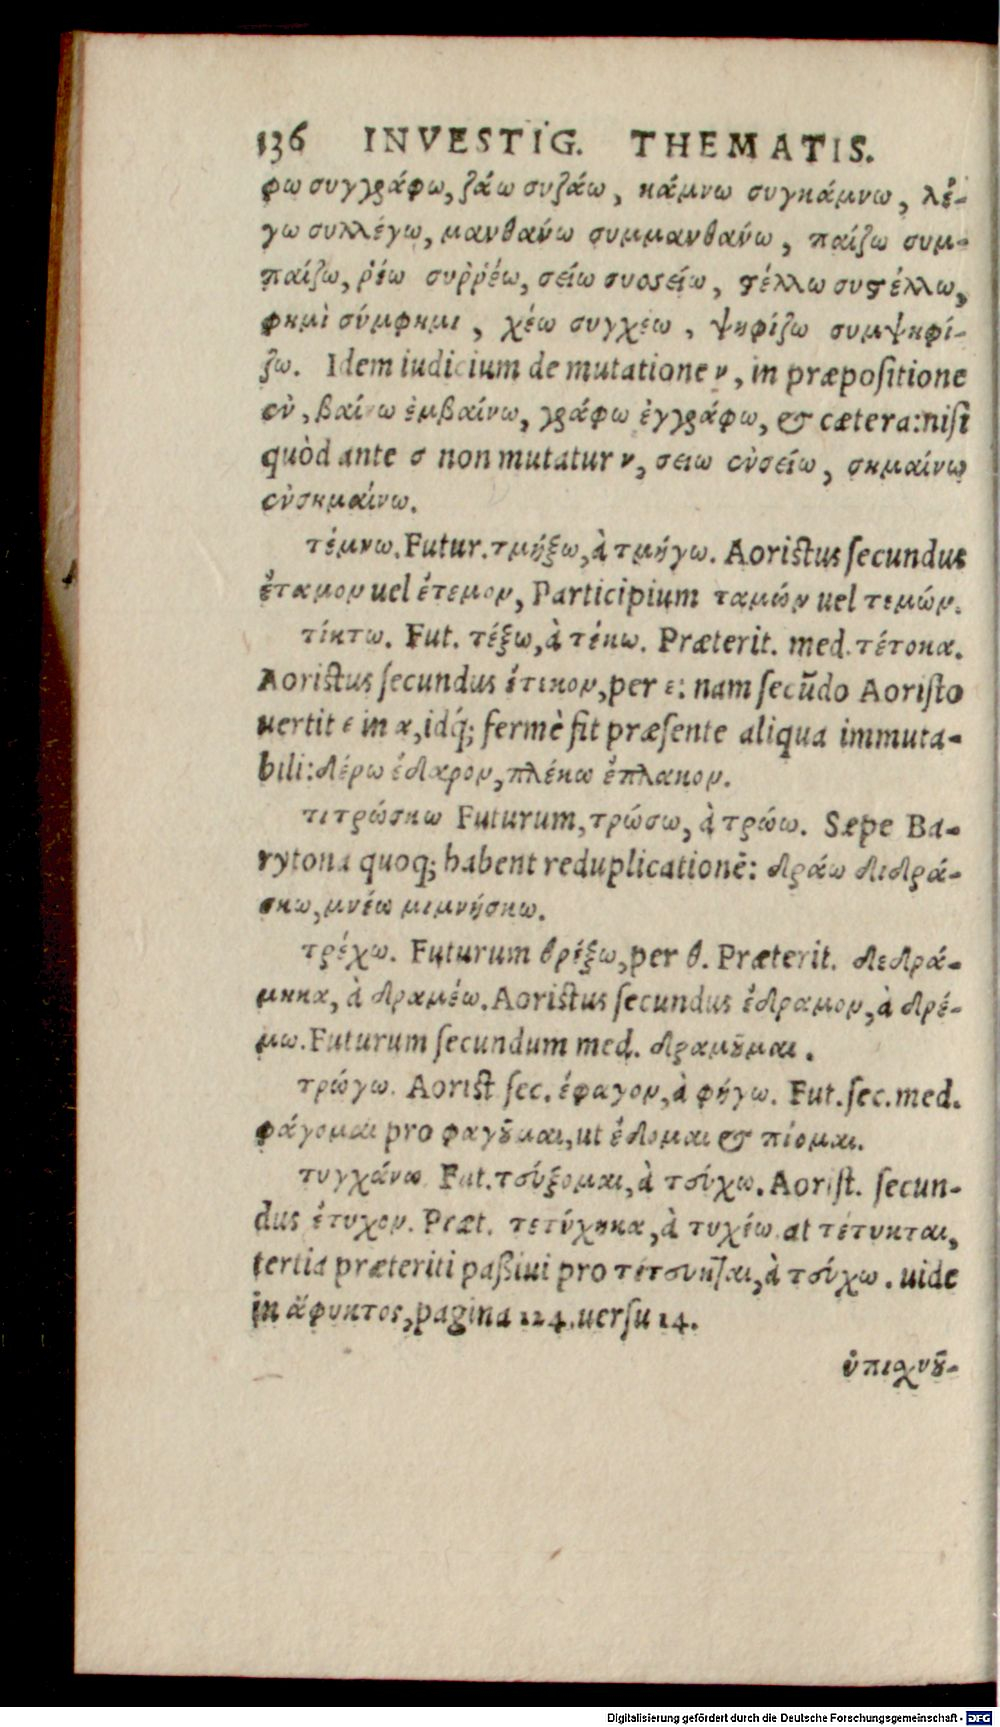 136 INVESTIG. THEMATIS.
φω συγγράφω, ζάω συζάω, κάμνω συγκάμνω, λέ-
γω συλλέγω, μανθανω συμμανθανω, παίζω συμ-
παίζω, ῥέω συῤῥέω, σείω συσσείω, ϛέλλω συϛέλλω,
φημὶ σύμφημι, χέω συγχέω, ψηφίζω συμψηφί-
ζω. Idem iudicium de mutatione ν, in præpoſitione
ἐν, βαίνω ἐμβαίνω, γράφω ἐγγράφω, & cætera: niſi
quòd ante σ non mutatur ν, σειω ἐνσείω, σημαίνω
ἐνσημαίνω.
τέμνω. Futur. τμήξω, à τμήγω. Aoriſtus ſecundus
ἔταμον uel ἔτεμον, Participium ταμών uel τεμών.
τίκτω. Fut. τέξω, à τέκω. Præterit. med. τέτοκα.
Aoriſtus ſecundus ἔτεκον, per ε: nam ſecūdo Aoriſto
uertit ε in α, idq́; fermè fit præſente aliqua immuta-
bili: δέρω ἔδαρον, πλέκω ἔπλακον.
τιτρώσκω Futurum, τρώσω, à τρώω. Sæpe Ba-
rytona quoq; habent reduplicationē: δράω διδρά-
σκω, μνέω μιμνήσκω.
τρέχω. Futurum θρέξω, per θ. Præterit. δεδρά-
μηκα, à δραμέω. Aoriſtus ſecundus ἔδραμον, à δρέ-
μω. Futurum ſecundum med. δραμοῦμαι.
τρώγω. Aoriſt ſec. ἔφαγον, à φήγω. Fut. ſec. med.
φάγομαι pro φαγοῦμαι, ut ἔδομαι & πίομαι.
τυγχάνω Fut. τεύξομαι, à τεύχω. Aoriſt. ſecun-
dus ἔτυχον. Præt. τετύχηκα, à τυχέω at τέτυκται,
tertia præteriti paßiui pro τέτευκται, à τεύχω. uide
in ἄφυκτος, pagina 124. uerſu 14.
ὑπισχνοῦ-
Digitalisierung gefördert durch die Deutsche Forschungsgemeinschaft - DFG